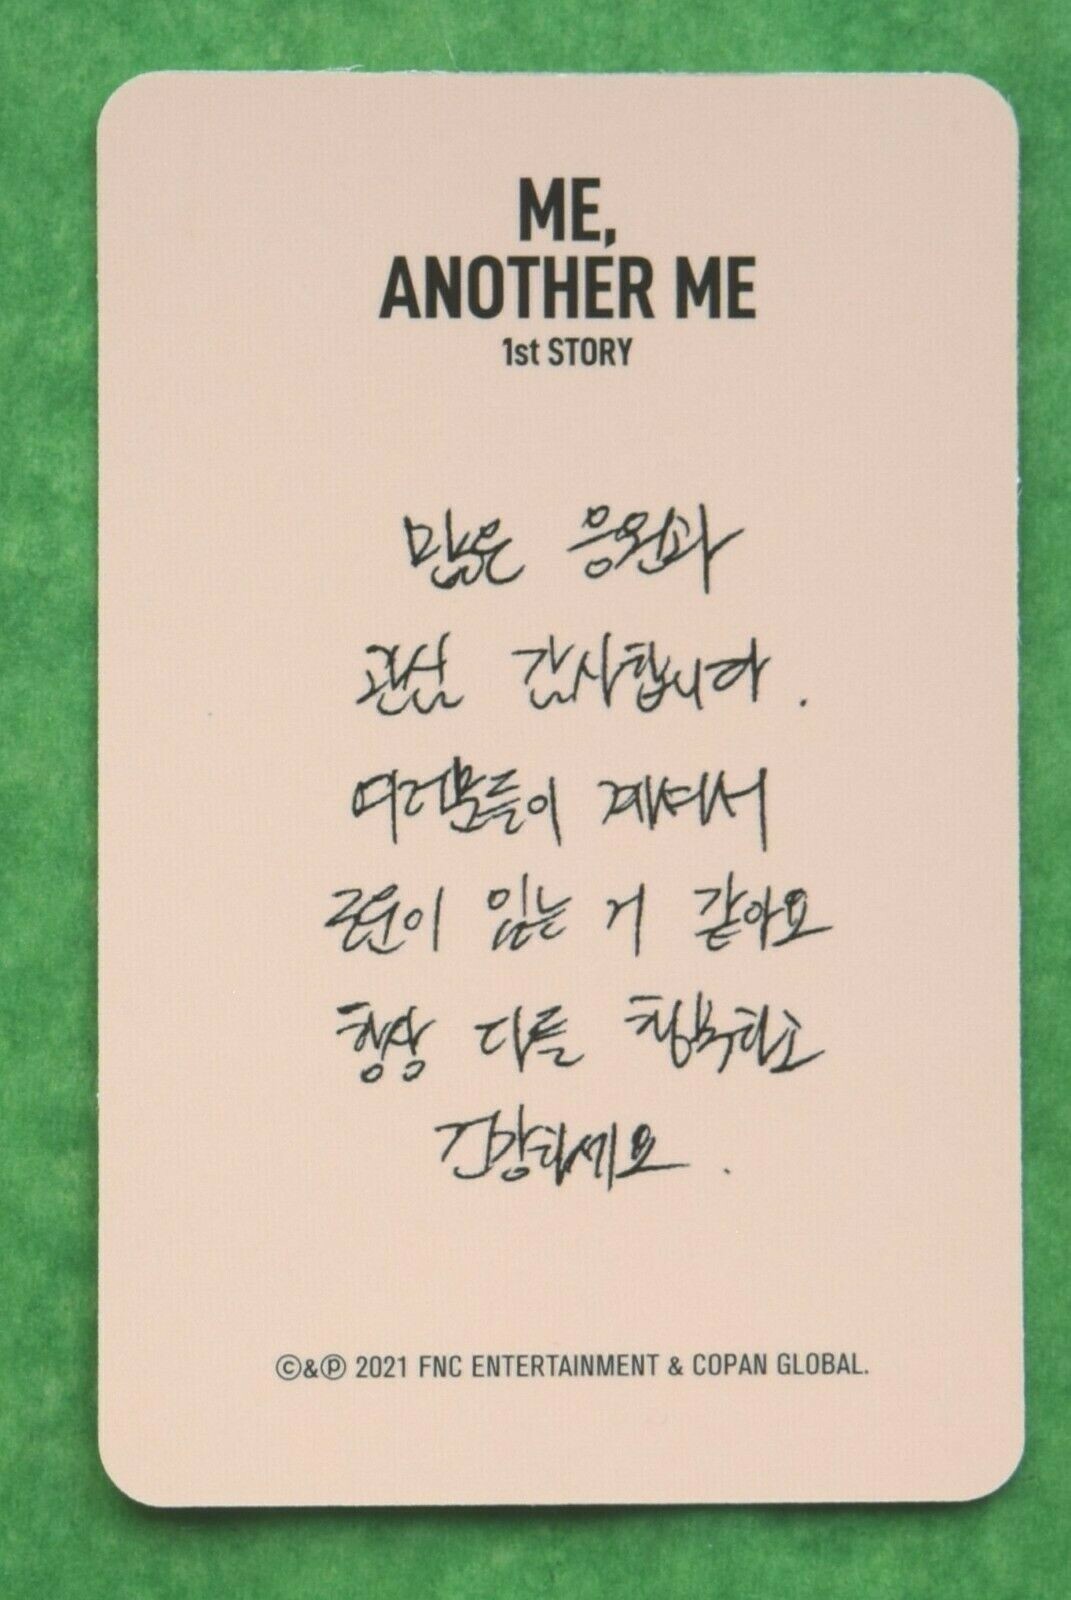 ME,
ANOTHER ME
1st STORY
많은 응원과
관심 감사합니다.
여러분들이 계셔서
로운이 있는 거 같아요
항상 다들 행복하고
건강하세요.
©&℗ 2021 FNC ENTERTAINMENT & COPAN GLOBAL.